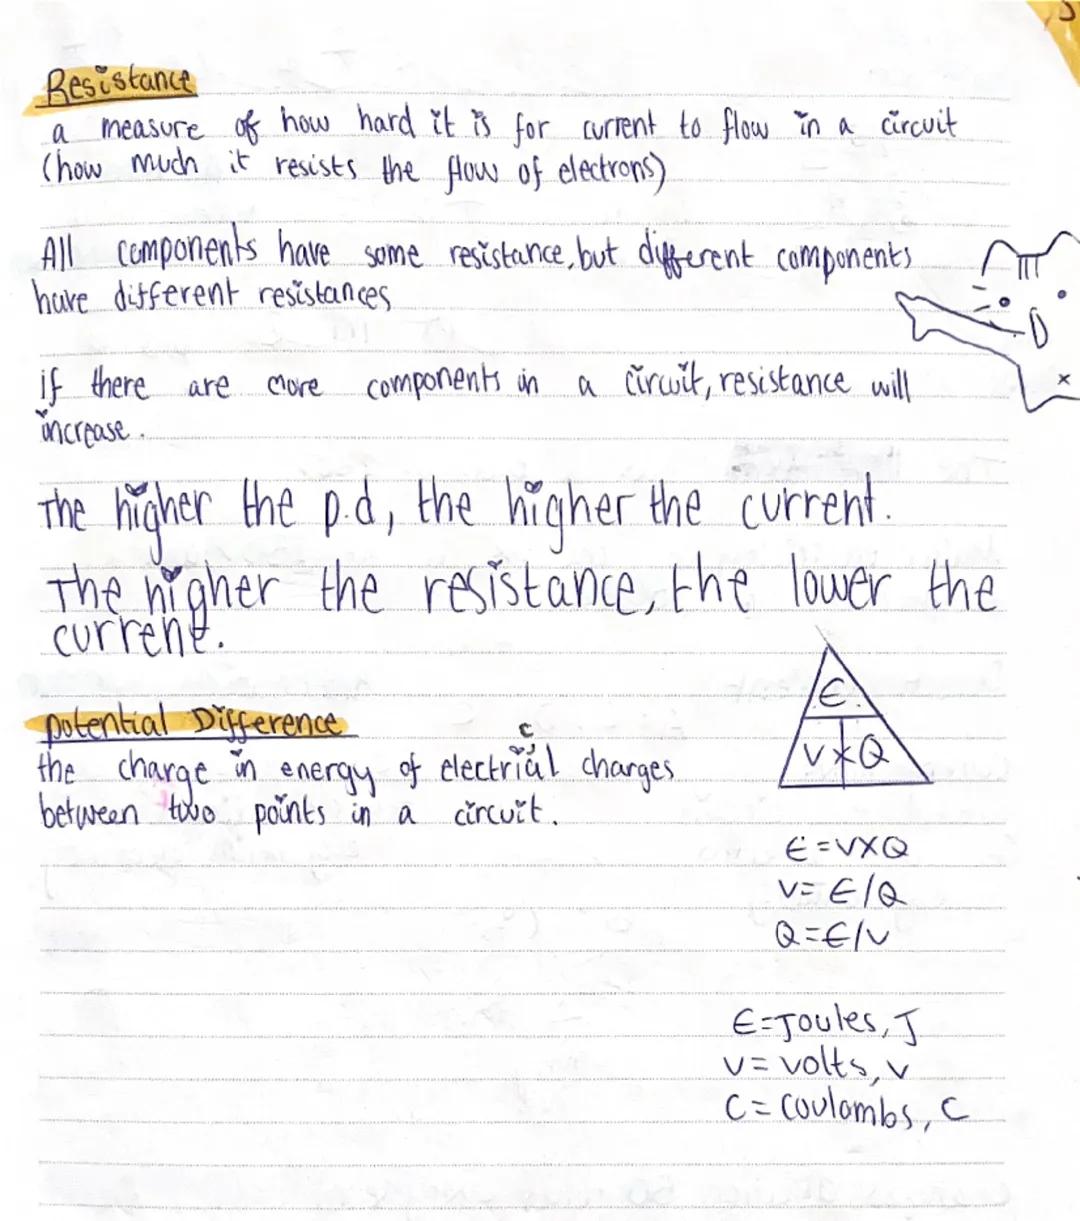 Resistance
a measure of how hard it is for current to flow in a circuit
(how much it resists the flow of electrons)
All components have some resistance, but different components
have different resistances
if there are more components in a circuit, resistance will
increase.
The higher the p.d, the higher the current.
The higher the resistance, the lower the
current.
potential Difference
c
the charge in energy of electrial charges
between two points in a circuit.
E
V x Q
E = V X Q
V = E / Q
Q = E / V
E = Joules, J
V = volts, v
C = Coulombs, C